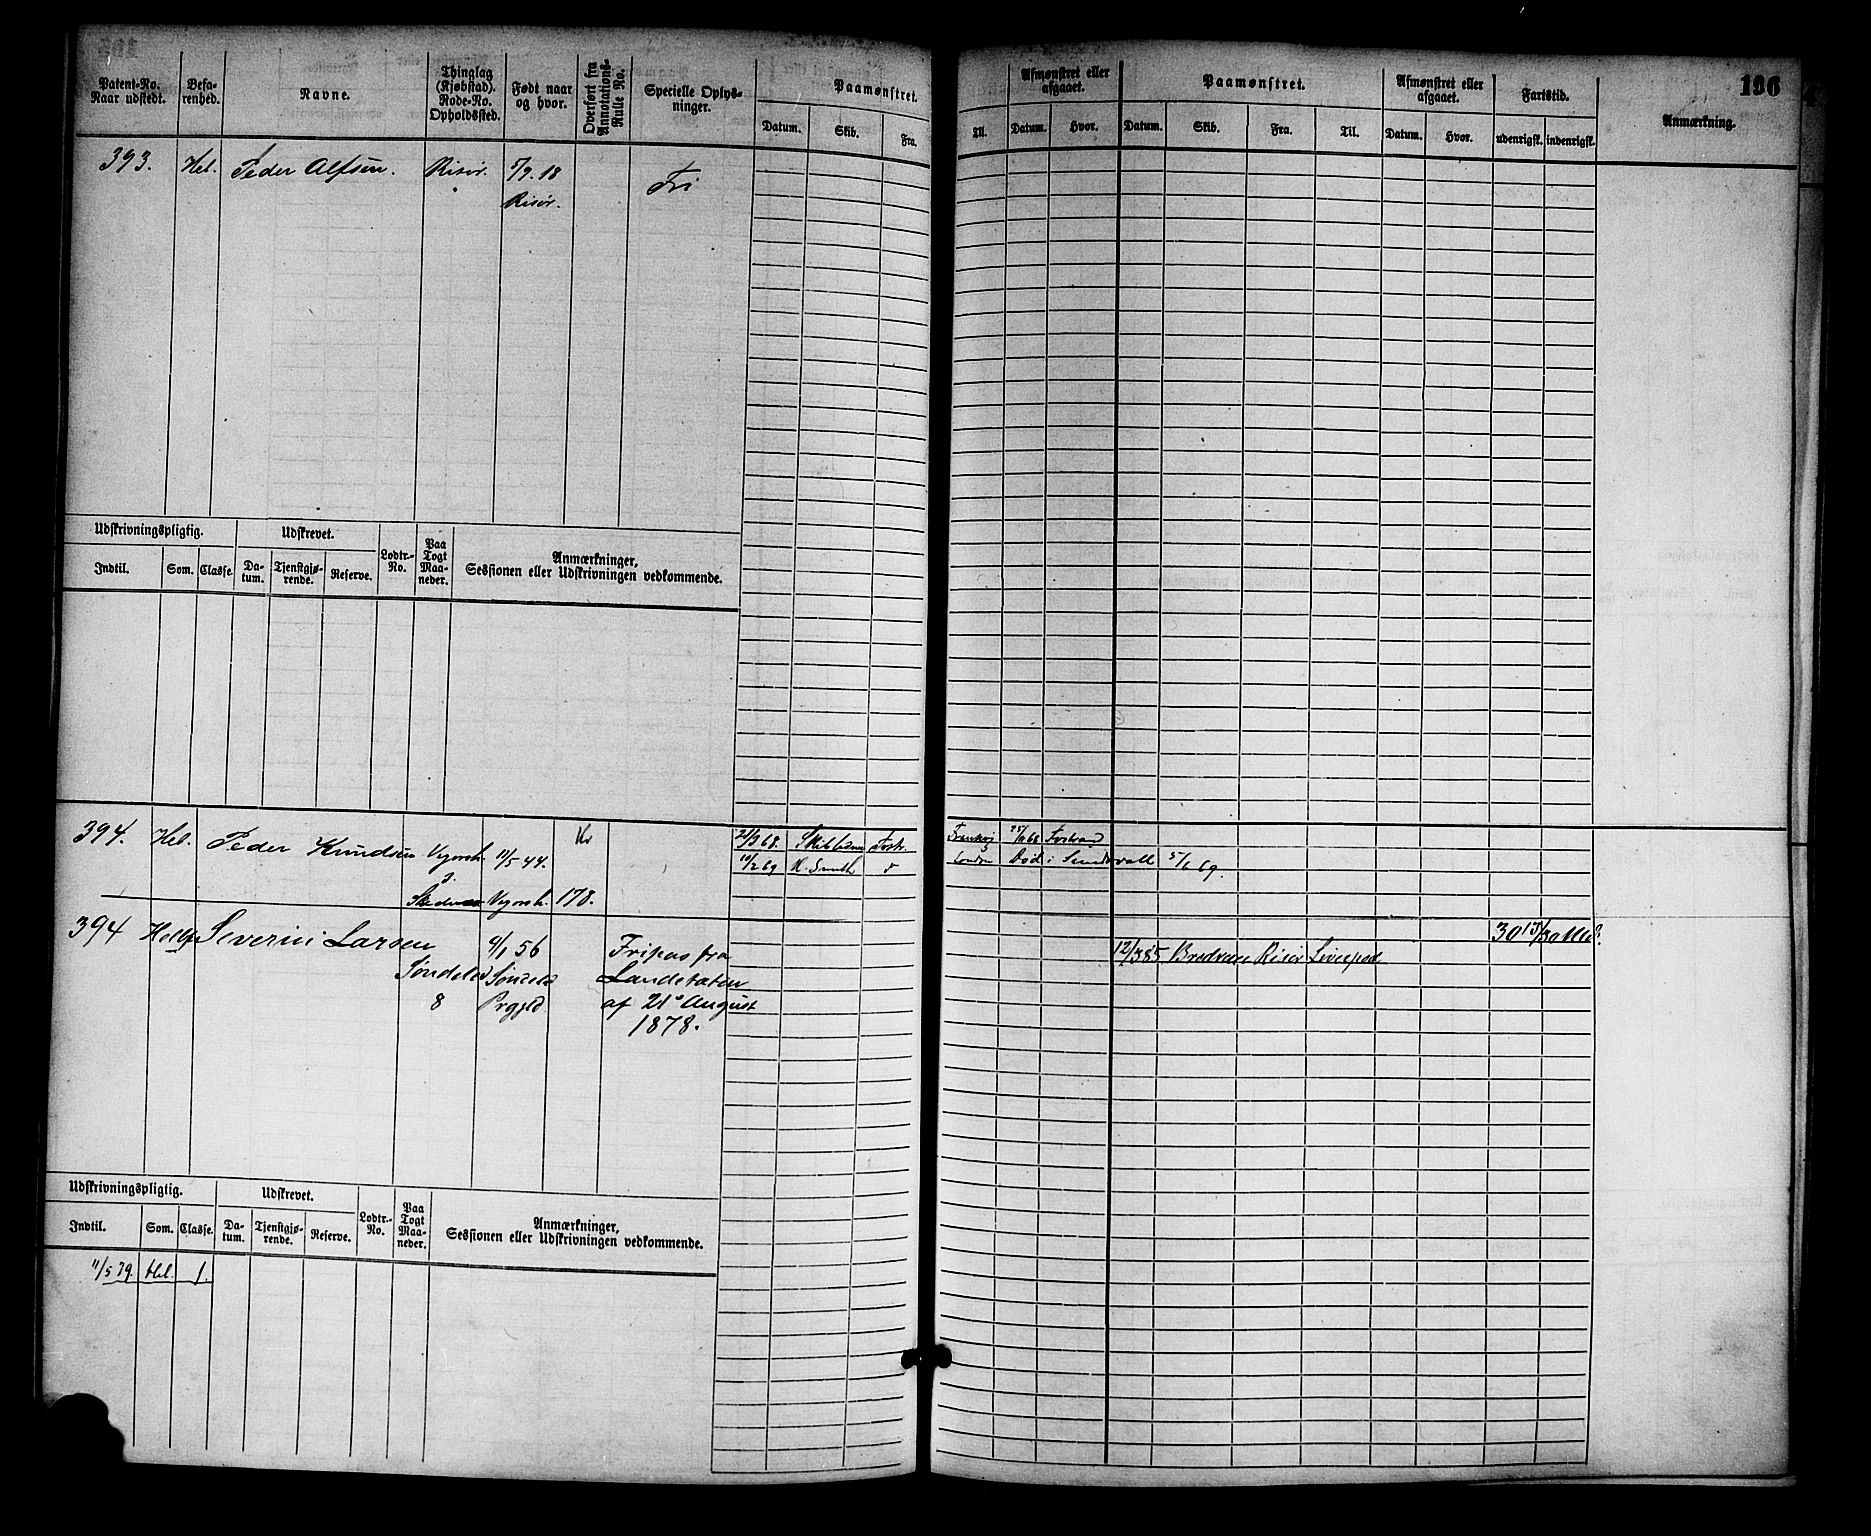 196
Patent-No. Naar udstedt. Befa-renhed. Navne. Thinglag (Kjøbstad). Rode-No. Opholdssted. Født naar og hvor. Overført fra Annotations-Rulle No. Specielle Oplys-ninger. Paamønstret. Afmønstret eller afgaaet. Paamønstret. Afmønstret eller afgaaet. Fartstid. Anmærkning.
Datum. Skib. Fra. Til. Datum. Hvor. Datum. Skib. Fra. Til. Datum. Hvor. udenrigsk. indenrigsk.
393. Hel. Peder Alfsen. Risør. 5/9. 18 Fri
Risør.
Udskrivningspligtig. Udskrevet. Lodtr.-No. Paa Togt Maa-neder. Anmærkninger, Sessionen eller Udskrivningen vedkommende.
Indtil. Som. Classe. Da-tum. Tjenstgjø-rende. Reserve.
394. Hel. Peder Knudsen 11/5 44.
10/2 69 London Død i Sundsvall 5/6 69.
178.
394 Helbf Severin Larsen 9/1 56 Fripas fra 30 13/30 Md.
Søndeled Landetaten 12/3 85 Risør Liverpool
8 Prgjld. af 21de August
1878.
Udskrivningspligtig. Udskrevet. Lodtr.-No. Paa Togt Maa-neder. Anmærkninger, Sessionen eller Udskrivningen vedkommende.
Indtil. Som. Classe. Da-tum. Tjenstgjø-rende. Reserve.
11/5 79. Hel. 1.